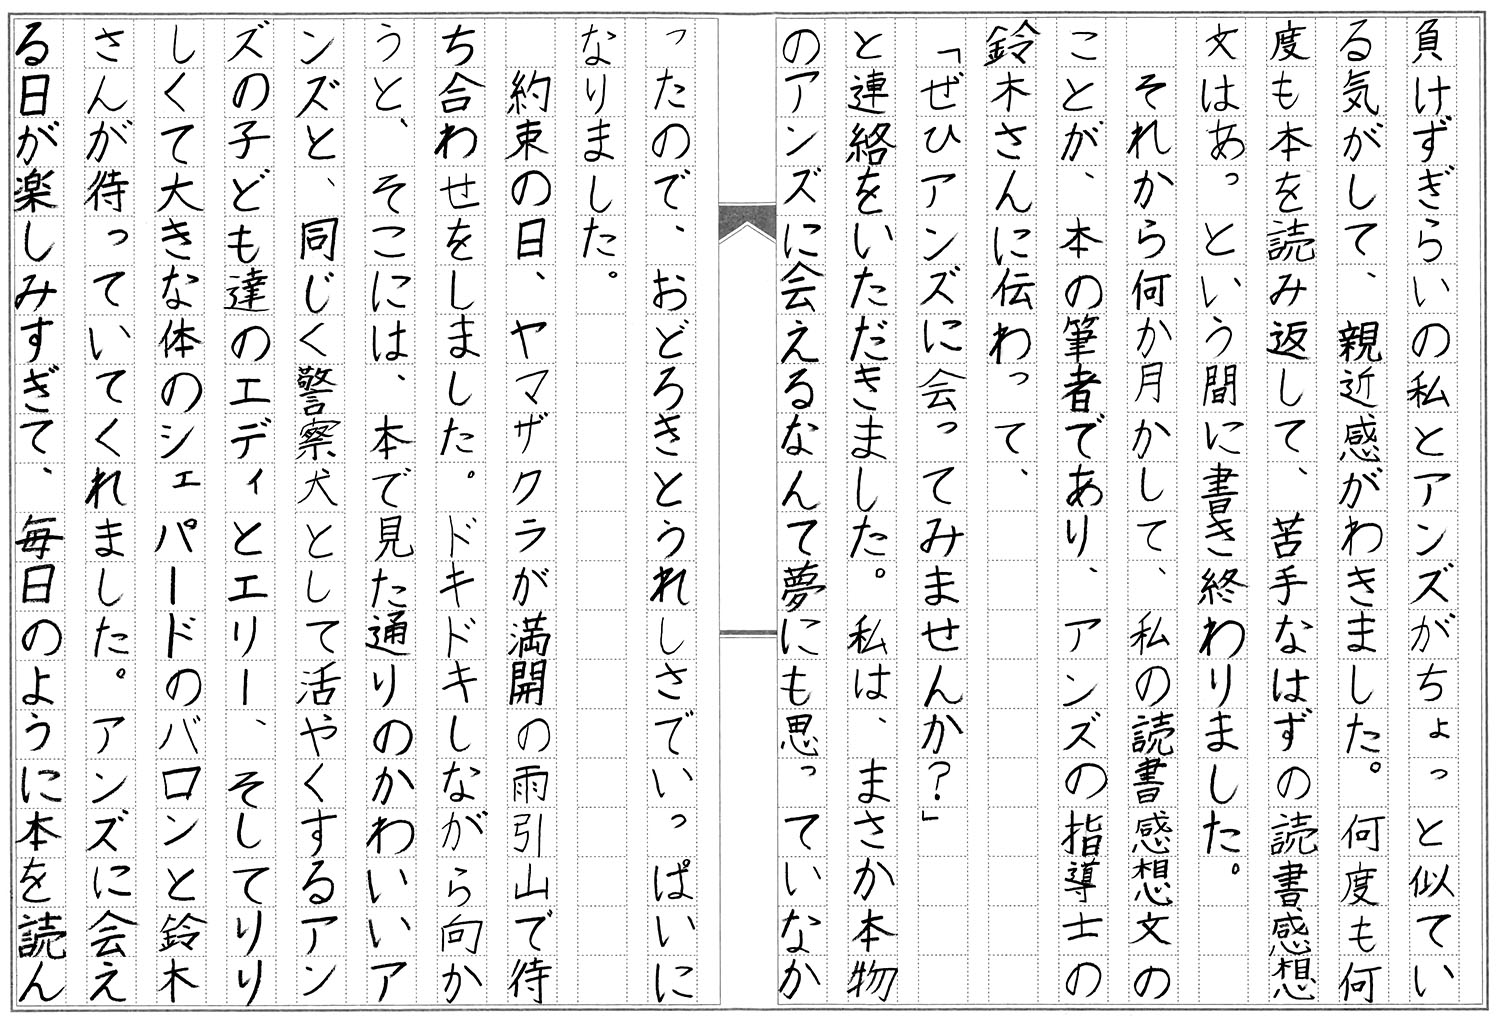 負けずぎらいの私とアンズがちょっと似てい
る気がして、親近感がわきました。何度も何
度も本を読み返して、苦手なはずの読書感想
文はあっという間に書き終わりました。
それから何か月かして、私の読書感想文の
ことが、本の筆者であり、アンズの指導士の
鈴木さんに伝わって、
「ぜひアンズに会ってみませんか？」
と連絡をいただきました。私は、まさか本物
のアンズに会えるなんて夢にも思っていなか
ったので、おどろきとうれしさでいっぱいに
なりました。
約束の日、ヤマザクラが満開の雨引山で待
ち合わせをしました。ドキドキしながら向か
うと、そこには、本で見た通りのかわいいア
ンズと、同じく警察犬として活やくするアン
ズの子ども達のエディとエリー、そしてりり
しくて大きな体のシェパードのバロンと鈴木
さんが待っていてくれました。アンズに会え
る日が楽しみすぎて、毎日のように本を読ん